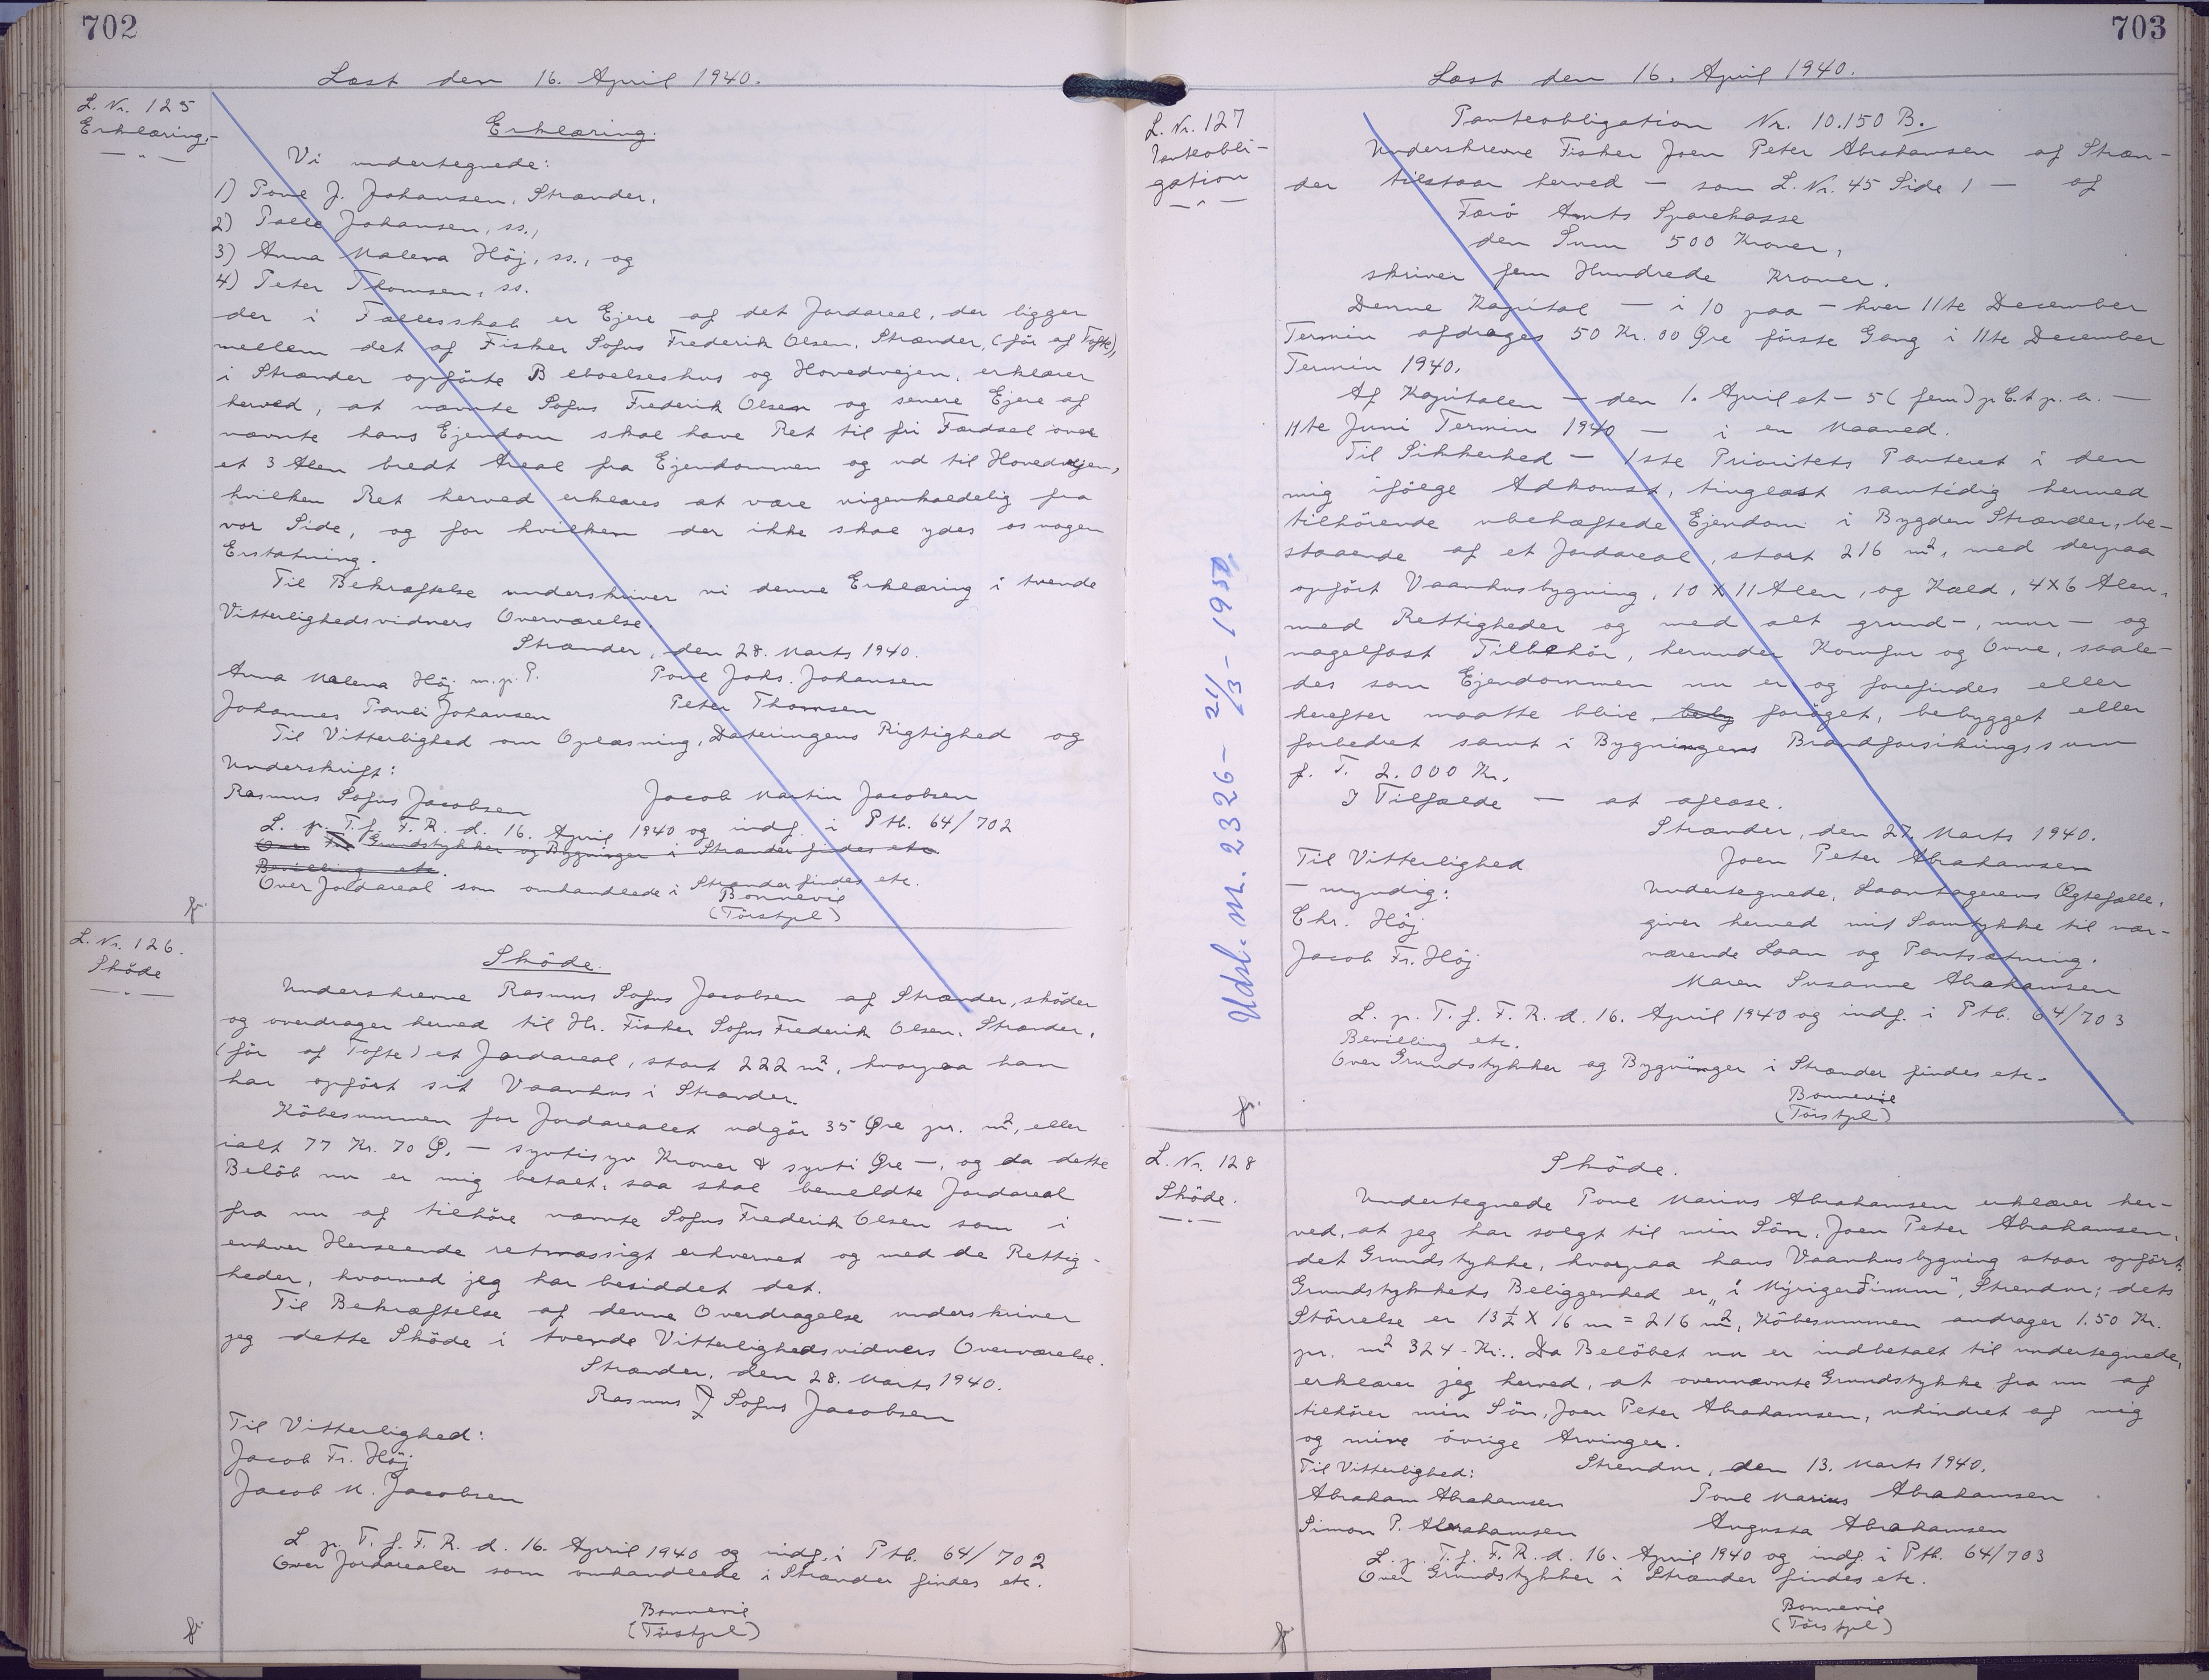 702
Læst den 16. April 1940.
L. Nr. 125
Erklæring.-
Erklæring.
Vi undertegnede:
1) Poul J. Johansen, Strænder,
2) Palle Johansen, ss.,
3) Anna Malena Höj, ss., og
4) Peter Thomsen, ss.
der i Fællesskab er Ejere af det Jordareal, der ligger
mellem det af Fisker Sofus Frederik Olsen, Strænder, (för af Tofte),
i Strænder opförte Beboelseshus og Hovedvejen, erklærer
herved, at nævnte Sofus Frederik Olsen og senere Ejere af
nævnte hans Ejendom skal have Ret til fri Færdsel over
et 3 Alen bredt Areal fra Ejendommen og ud til Hovedvejen,
hvilken Ret herved erklæres at være uigenkaldelig fra
vor Side, og for hvilken der ikke skal ydes os nogen
Erstatning.
Til Bekræftelse underskriver vi denne Erklæring i tvende
Vitterlighedsvidners Overværelse.
Strænder, den 28. Marts 1940.
Anna Malena Höj m. p. P. Poul Johs. Johansen
Johannes Pauli Johansen Peter Thomsen
Til Vitterlighed om Oplæsning, Dateringens Rigtighed og
Underskrift:
Rasmus Sofus Jacobsen Jacob Martin Jacobsen
L. p. T. f. F. R. d. 16. April 1940 og indf. i Ptb. 64/702
Over Grundstykker og Bygninger i Strænder findes etc.
Bevilling etc.
Over Jordareal som omhandlede i Strænder findes etc.
Bonnevie
(Törstfpl)
L. Nr. 126.
Sköde
Sköde.
Underskrevne Rasmus Sofus Jacobsen af Strænder, sköder
og overdrager herved til Hr. Fisker Sofus Frederik Olsen, Strænder,
(för af Tofte) et Jordareal, stort 222 m², hvorpaa han
har opfört sit Vaanhus i Strænder.
Köbesummen for Jordarealet udgör 35 Øre pr. m², eller
ialt 77 Kr. 70 Ø. - syvtisyv Kroner & syvti Øre -, og da dette
Belöb nu er mig betalt, saa skal bemeldte Jordareal
fra nu af tilhöre nævnte Sofus Frederik Olsen som i
enhver Henseende retmæssigt erhvervet og med de Rettig-
heder, hvormed jeg har besiddet det.
Til Bekræftelse af denne Overdragelse underskriver
jeg dette Sköde i tvende Vitterlighedsvidners Overværelse.
Strænder, den 28. Marts 1940.
Rasmus Sofus Jacobsen
Til Vitterlighed:
Jacob Fr. Höj
Jacob M. Jacobsen
L. p. T. f. F. R. d. 16. April 1940 og indf. i Ptb. 64/702
Over Jordarealer som omhandlede i Strænder findes etc.
Bonnevie
(Törstfpl)
703
Læst den 16. April 1940.
L. Nr. 127
Panteobli-
gation
Panteobligation Nr. 10.150 B.
Underskrevne Fisker Joen Peter Abrahamsen af Stræn-
der tilstaar herved - som L. Nr. 45 Side 1 - af
Færö Amts Sparekasse
den Sum 500 Kroner,
skriver fem Hundrede Kroner.
Denne Kapital - i 10 paa - hver 11te December
Termin afdrages 50 Kr. 00 Øre förste Gang i 11te December
Termin 1940.
Af Kapitalen - den 1. April et - 5 (fem) p Ct p. a. -
11te Juni Termin 1940 - i en Maaned.
Til Sikkerhed - 1ste Prioritets Panteret i den
mig ifölge Adkomst, tinglæst samtidig hermed
tilhörende ubehæftede Ejendom i Bygden Strænder, be-
staaende af et Jordareal, stort 216 m², med derpaa
opfört Vaanhusbygning, 10 X 11 Alen, og Kæld, 4X6 Alen,
med Rettigheder og med alt grund-, mur- og
nagelfast Tilbehör, herunder Komfur og Ovne, saale-
des som Ejendommen nu er og forefindes eller
herefter maatte blive beby foröget, bebygget eller
forbedret samt i Bygningens Brandforsikringssum
f. T. 2.000 Kr.
I Tilfælde - at aflæse.
Strænder, den 27. Marts 1940.
Til Vitterlighed Joen Peter Abrahamsen
- myndig: Undertegnede, Laantagerens Ægtefælle,
Chr. Höj giver herved mit Samtykke til nær-
Jacob Fr. Höj værende Laan og Pantsætning.
Maren Susanne Abrahamsen
L. p. T. f. F. R. d. 16. April 1940 og indf. i Ptb. 64/703
Bevilling etc.
Over Grundstykker og Bygninger i Strænder findes etc.
Bonnevie
(Törstfpl)
Udsl. nr. 2326 - 24/3 - 1950
L. Nr. 128
Sköde.
Sköde.
Undertegnede Poul Marius Abrahamsen erklærer her-
ved, at jeg har solgt til min Sön, Joen Peter Abrahamsen,
det Grundstykke, hvorpaa hans Vaanhusbygning staar opfört.
Grundstykkets Beliggenhed er „i Mýrigerðinum", Strendur; dets
Störrelse er 13½ X 16 m = 216 m², Köbesummen andrager 1.50 Kr.
pr. m² 324 - Kr.. Da Belöbet nu er indbetalt til undertegnede,
erklærer jeg herved, at ovennævnte Grundstykke fra nu af
tilhörer min Sön, Joen Peter Abrahamsen, uhindret af mig
og mine övrige Arvinger.
Til Vitterlighed: Strendur, den 13. Marts 1940.
Abraham Abrahamsen Poul Marius Abrahamsen
Simon P. Abrahamsen Augusta Abrahamsen
L. p. T. f. F. R. d. 16. April 1940 og indf. i Ptb. 64/703
Over Grundstykker i Strænder findes etc.
Bonnevie
(Törstfpl)